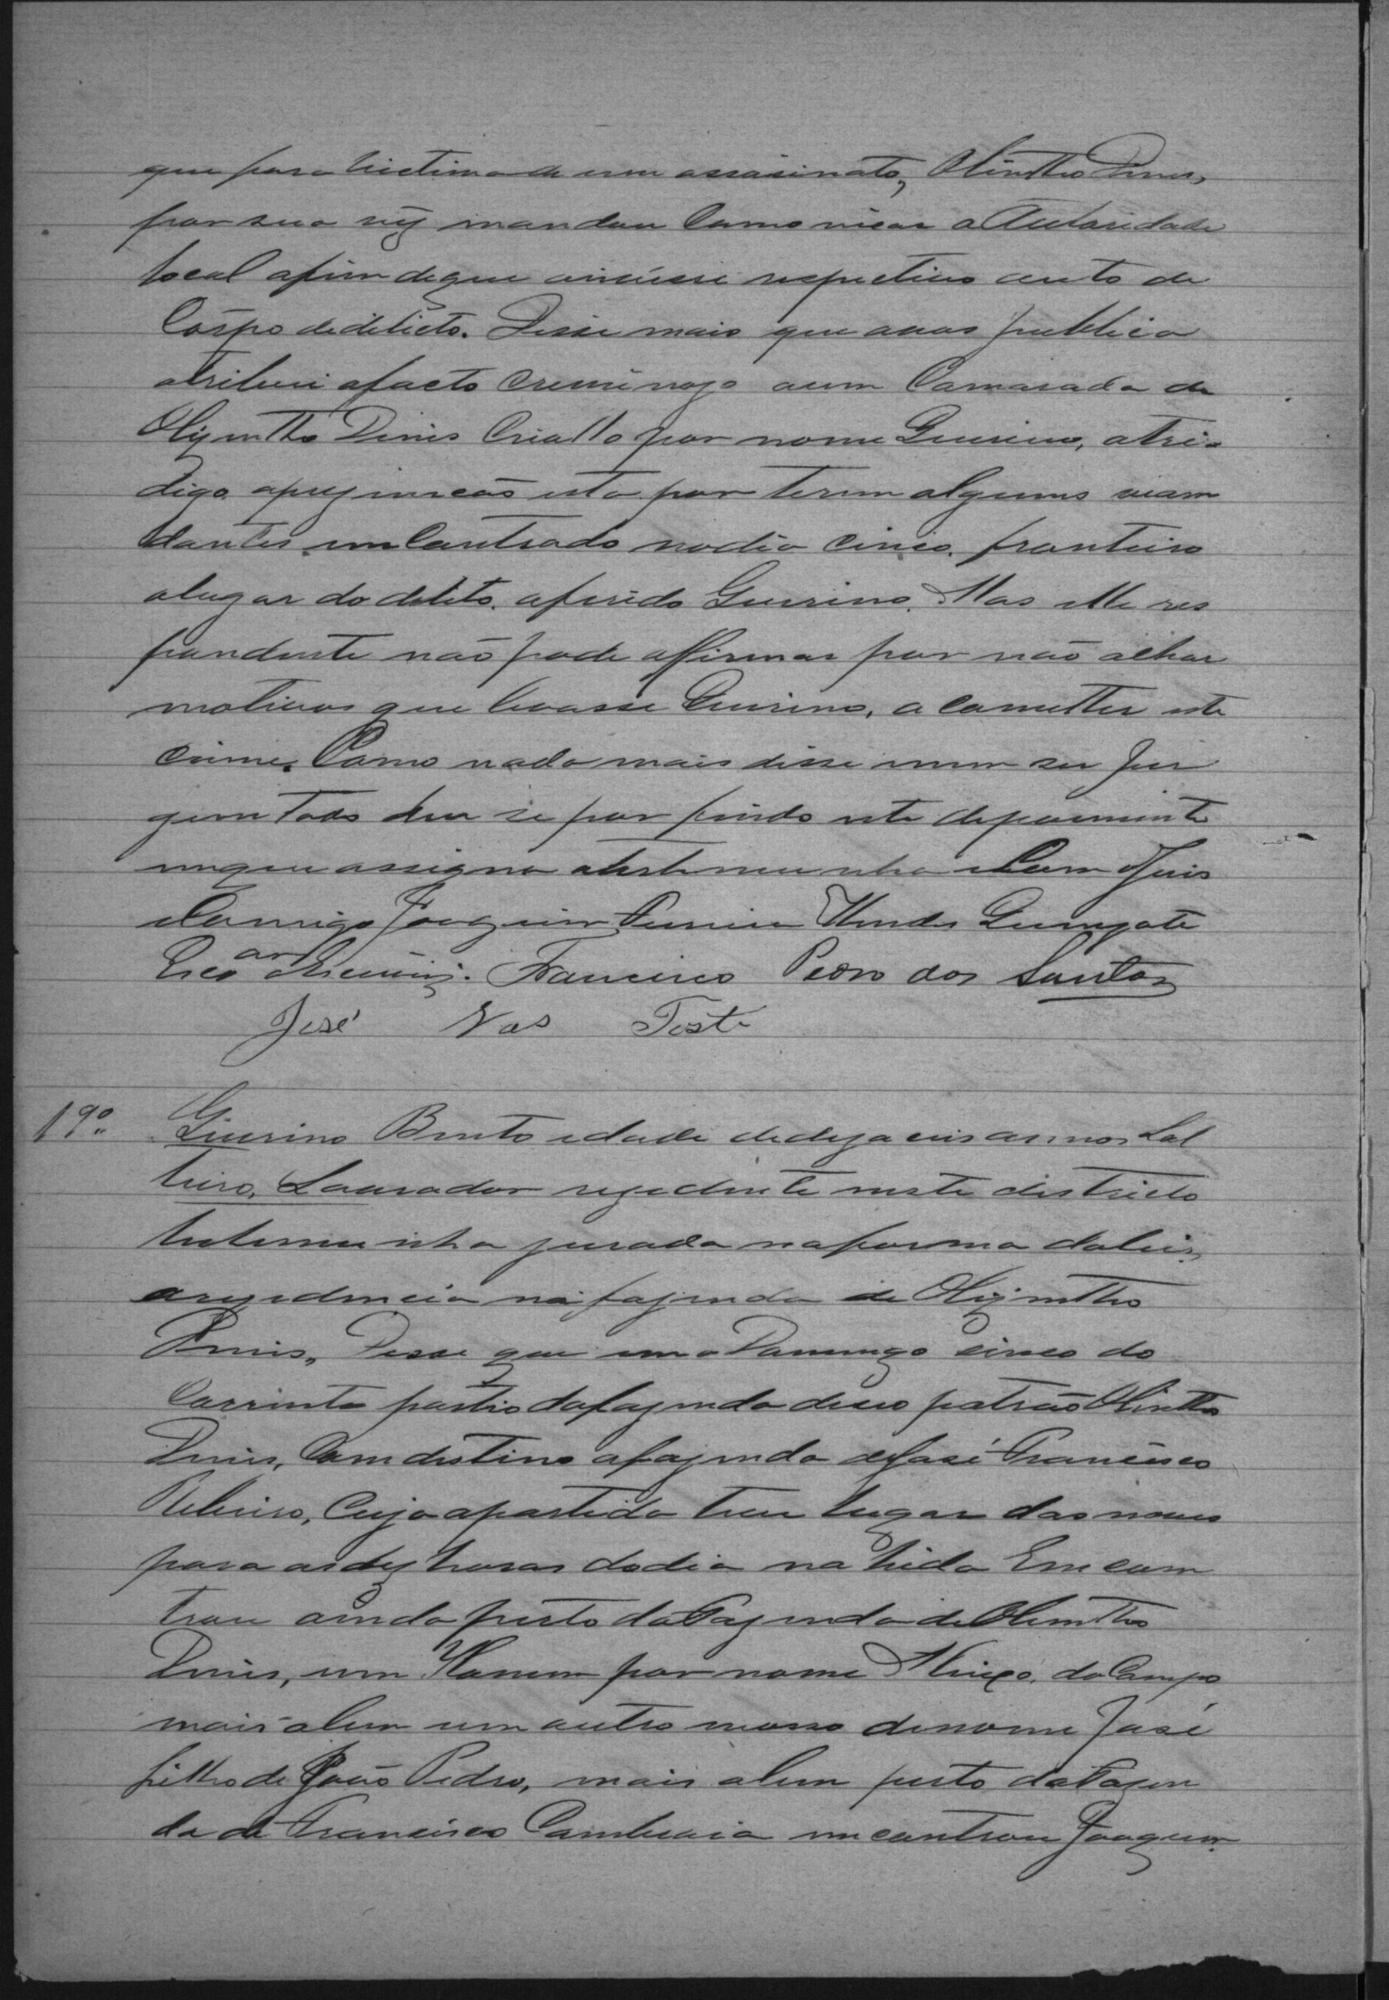 que fora victima de um assasinato, Olintho Dinis,
por sua vez mandou Comonicar a Autoridade
local afim de que viéssi respectivo auto de
Corpo de delicto. Disse mais que avos publica
atribui afacto Creminozo aum Camarada de
Olyntho Dinis Criollo por nome Guirino, atri-
digo apuzincão isto por terem algums viam
dantes emContrado nodia cinco. fronteiro
alugar do delito. afirido Guirino. Mas elle res
pondente não pode affirmar por não achar
motivos que livasse Guirino, a Cometter este
crime. Como nada mais disse nem ser per
guntado deu se por findo este depoimento
emque assigna atestemunha eCom o Juis
eComigo Joaquim Pereira Mendes
Francisco Pedro dos Santos
José Vas Testa
19º. Guirino Bento edade dedezaceis annos Sol
teiro, Lavrador rezedente neste districto
testemunha jurada naforma dalei,
arezedencia na fazenda de Olyntho
Dinis, Disse que em o Domingo cinco do
Corrinte partio dafazenda deseo patrão Olintho
Dinis, Comdestino afazenda deJosé Francisco
Ribeiro, Cuja apartida teve lugar das nove
para asdez horas dodia na hida Emcom
trou ainda perto da Fazenda de Olintho
Dinis, um Homem por nome do Campo
mais alem um outro mosso denome José
filho de João Pedro, mais alem perto daFazen
da de Francisco Cambraia emcontrou Joaquim